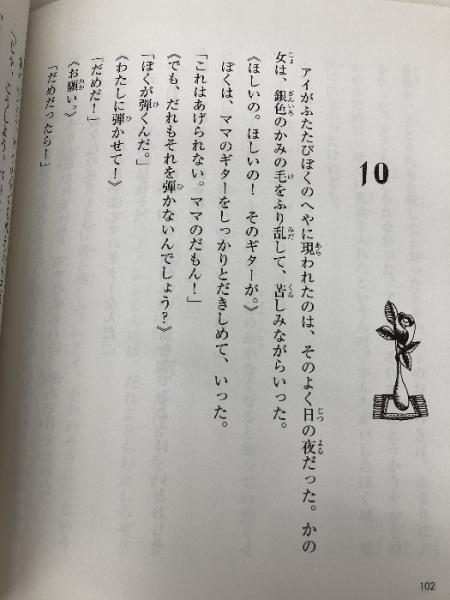 10
アイがふたたびぼくのへやに現われたのは、そのよく日の夜だった。かの
女は、銀色のかみの毛をふり乱して、苦しみながらいった。
《ほしいの。ほしいの！　そのギターが。》
ぼくは、ママのギターをしっかりとだきしめて、いった。
「これはあげられない。ママのだもん！」
《でも、だれもそれを弾かないんでしょう？》
「ぼくが弾くんだ。」
《わたしに弾かせて！》
「だめだ！」
《お願い。》
「だめだったら！」
102